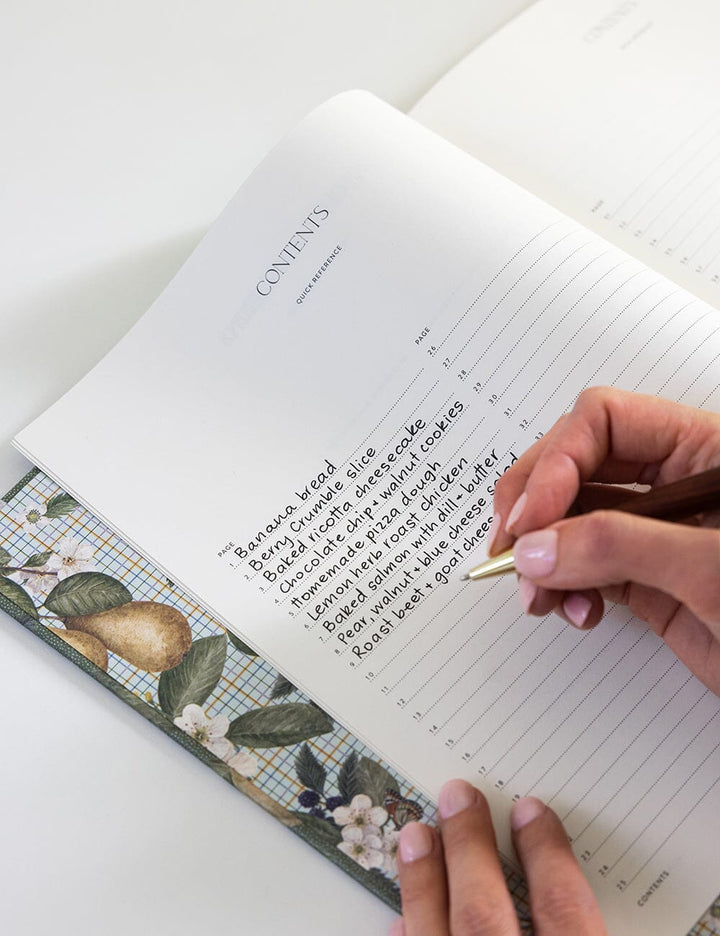 CONTENTS
QUICK REFERENCE
PAGE
1 Banana bread
2 Berry Crumble slice
3 Baked ricotta cheesecake
4 Chocolate chip + walnut cookies
5 Homemade pizza dough
6 Lemon herb roast chicken
7 Baked salmon with dill + butter
8 Pear, walnut + blue cheese salad
9 Roast beet + goat cheese
10
11
12
13
14
15
16
17
18
19
20
21
22
23
24
25
PAGE
26
27
28
29
30
31
32
33
CONTENTS
CONTENTS
PAGE